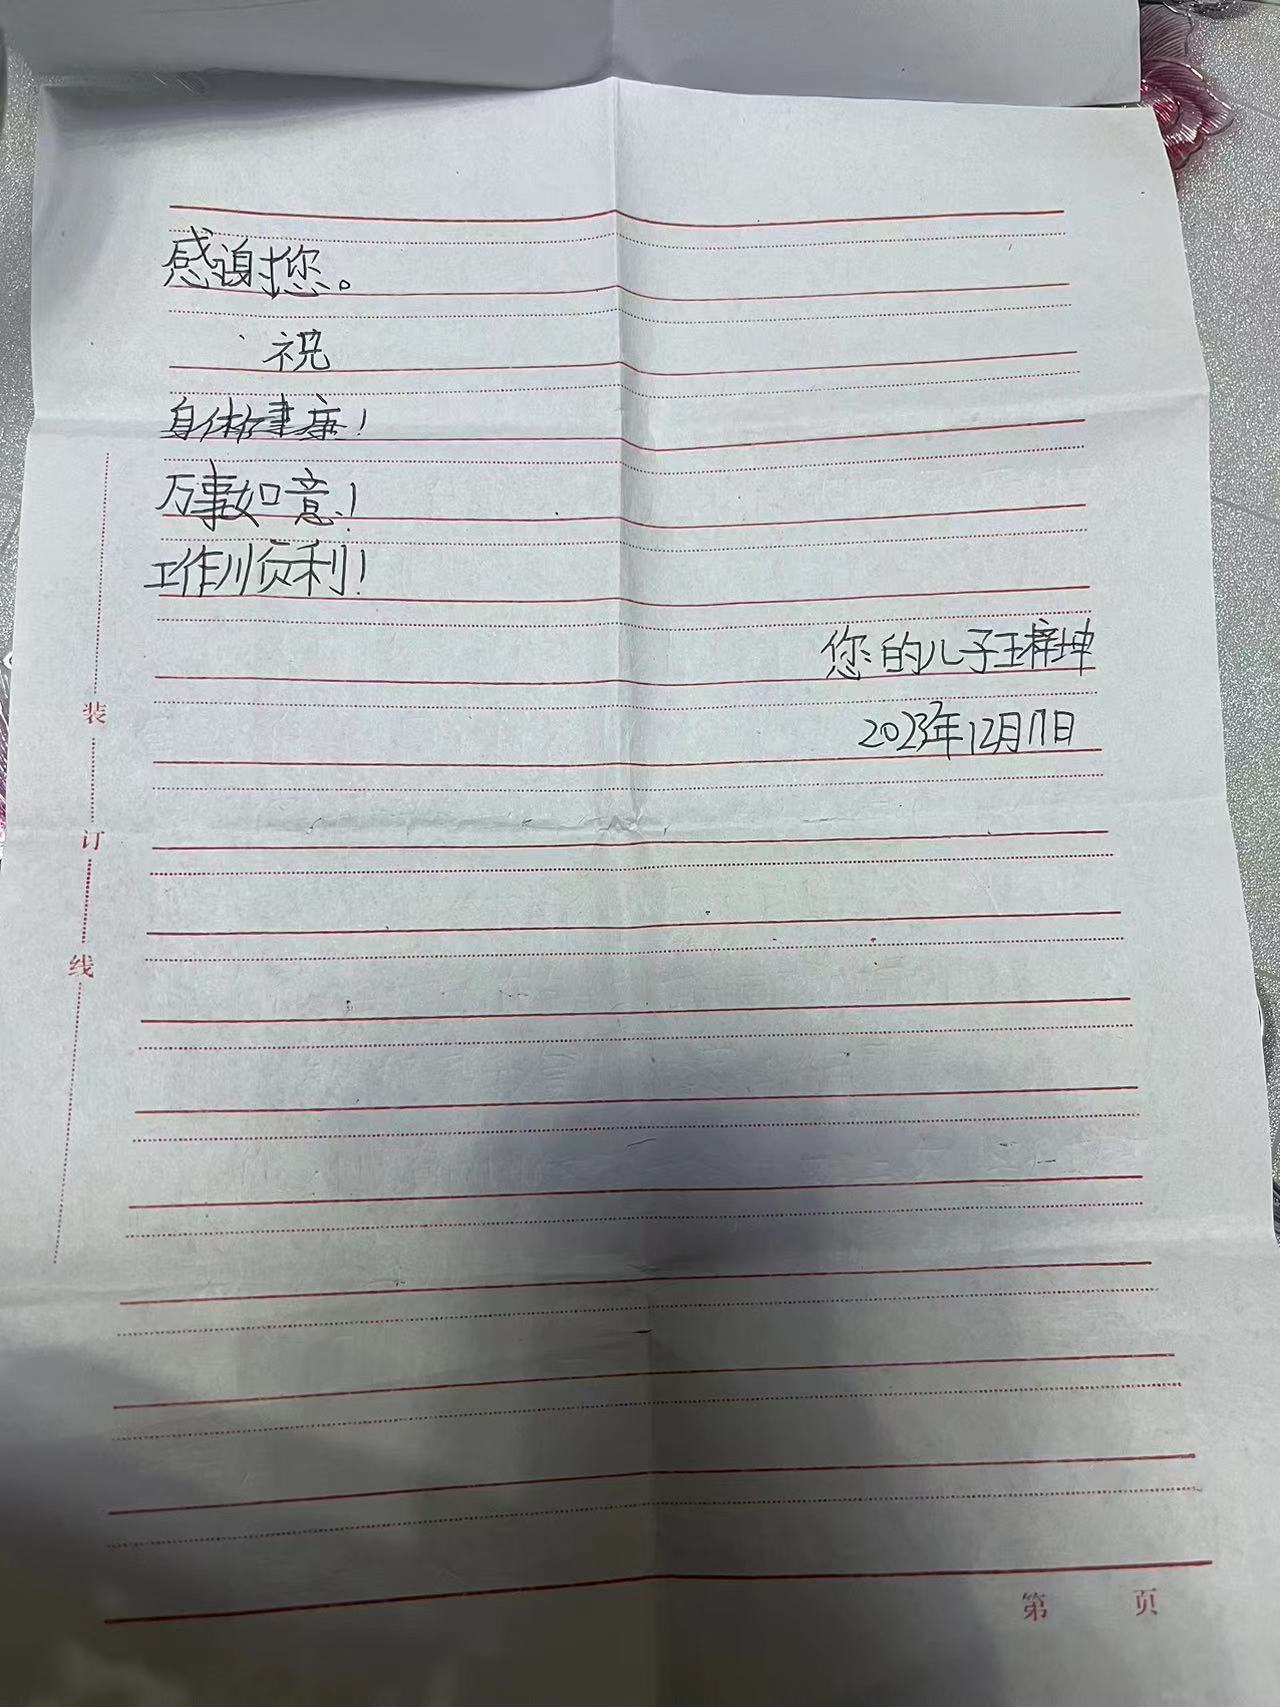 感谢您。
祝
身体健康！
万事如意！
工作顺利！
您的儿子王梓坤
2023年12月17日
装
订
线
第 页